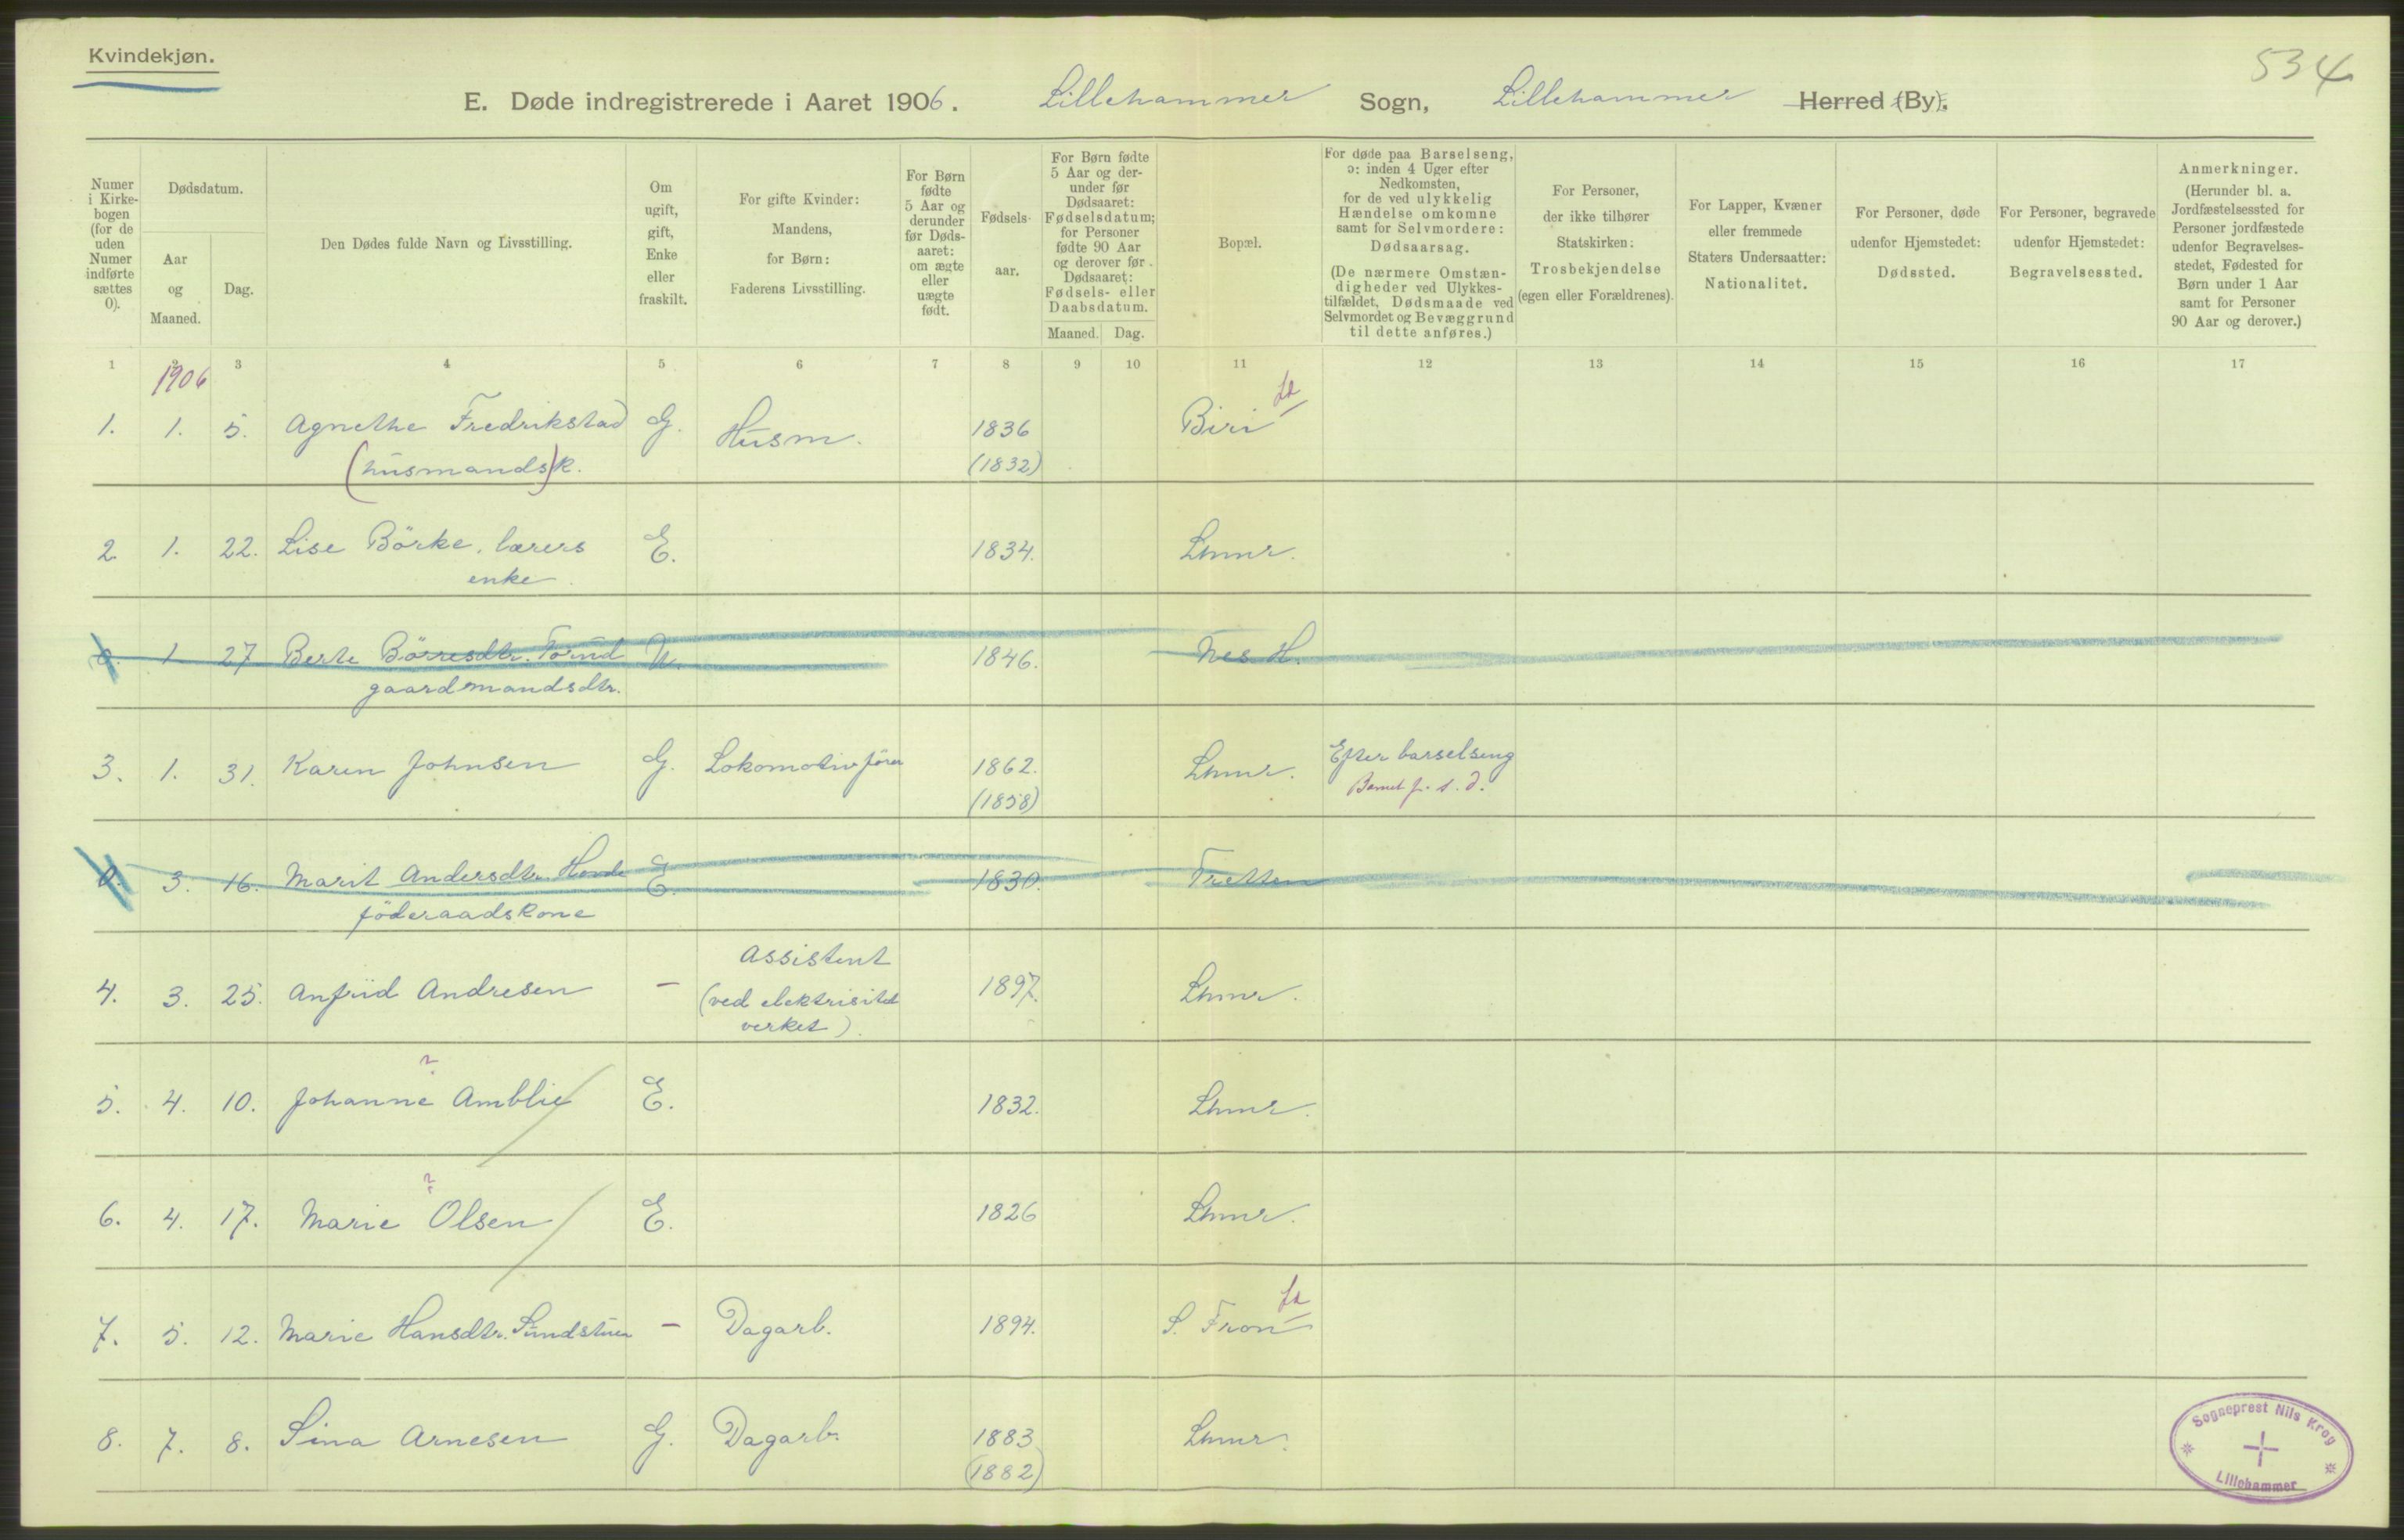 Kvindekjøn.
534
E. Døde indregistrerede i Aaret 1906. Lillehammer Sogn, Lillehammer Herred (By).
Numer i Kirke-bogen (for de uden Numer indførte sættes 0).
Dødsdatum.
Aar og Maaned.
Dag.
Den Dødes fulde Navn og Livsstilling.
Om ugift, gift, Enke eller fraskilt.
For gifte Kvinder: Mandens, for Børn: Faderens Livsstilling.
For Børn fødte 5 Aar og derunder før Døds-aaret: om ægte eller uægte født.
Fødsels-aar.
For Børn fødte 5 Aar og der-under før Dødsaaret: Fødselsdatum; for Personer fødte 90 Aar og derover før Dødsaaret: Fødsels- eller Daabsdatum.
Maaned. Dag.
Bopæl.
For døde paa Barselseng, ɔ: inden 4 Uger efter Nedkomsten, for de ved ulykkelig Hændelse omkomne samt for Selvmordere: Dødsaarsag.
(De nærmere Omstæn-digheder ved Ulykkes-tilfældet, Dødsmaade ved Selvmordet og Bevæggrund til dette anføres.)
For Personer, der ikke tilhører Statskirken: Trosbekjendelse (egen eller Forældrenes).
For Lapper, Kvæner eller fremmede Staters Undersaatter: Nationalitet.
For Personer, døde udenfor Hjemstedet: Dødssted.
For Personer, begravede udenfor Hjemstedet: Begravelsessted.
Anmerkninger.
(Herunder bl. a. Jordfæstelsessted for Personer jordfæstede udenfor Begravelses-stedet, Fødested for Børn under 1 Aar samt for Personer 90 Aar og derover.)
1 2 3 4 5 6 7 8 9 10 11 12 13 14 15 16 17
1906
1. 1. 5. Agnethe Fredrikstad G. Husm. 1836 Biri
(husmands)k. (1832)
2 1. 22. Lise Börke, lærers E. 1834. Lhmr.
enke
0. 1 27 Berte Börresdtr. Forud U. 1846. Nes H.
gaardmandsdtr.
3. 1. 31. Karen Johnsen G. Lokomotivfører 1862. Lhmr. Efter barselseng
(1858) Barnet f. s. d.
0. 3. 16. Marit Andersdtr. Honde E. 1830. Tretten
föderaadskone
4. 3. 25. Anfrid Andresen - Assistent 1897. Lhmr.
(ved elektrisitet
verket).
5. 4. 10. Johanne Amblie E. 1832. Lhmr.
6. 4. 17. Marie Olsen E. 1826 Lhmr.
7. 5. 12. Marie Hansdtr. Sundstuen - Dagarb. 1894. S. Fron
8. 7. 8. Sina Arnesen G. Dagarb. 1883 Lhmr.
(1882)
Sogneprest Nils Krog
Lillehammer